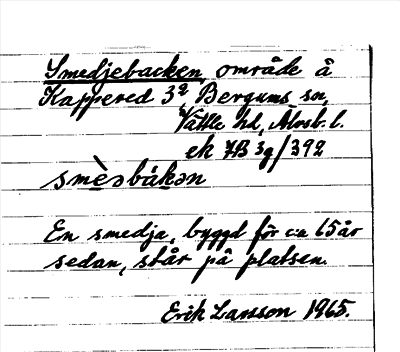 Smedjebacken, område å
Kappered 3², Bergums sn,
Vättle hd, Älvsb. l.
ek 7B 3g/392
smèəbákən
En smedja, byggd för c:a 65 år
sedan, står på platsen.
Erik Larsson 1965.